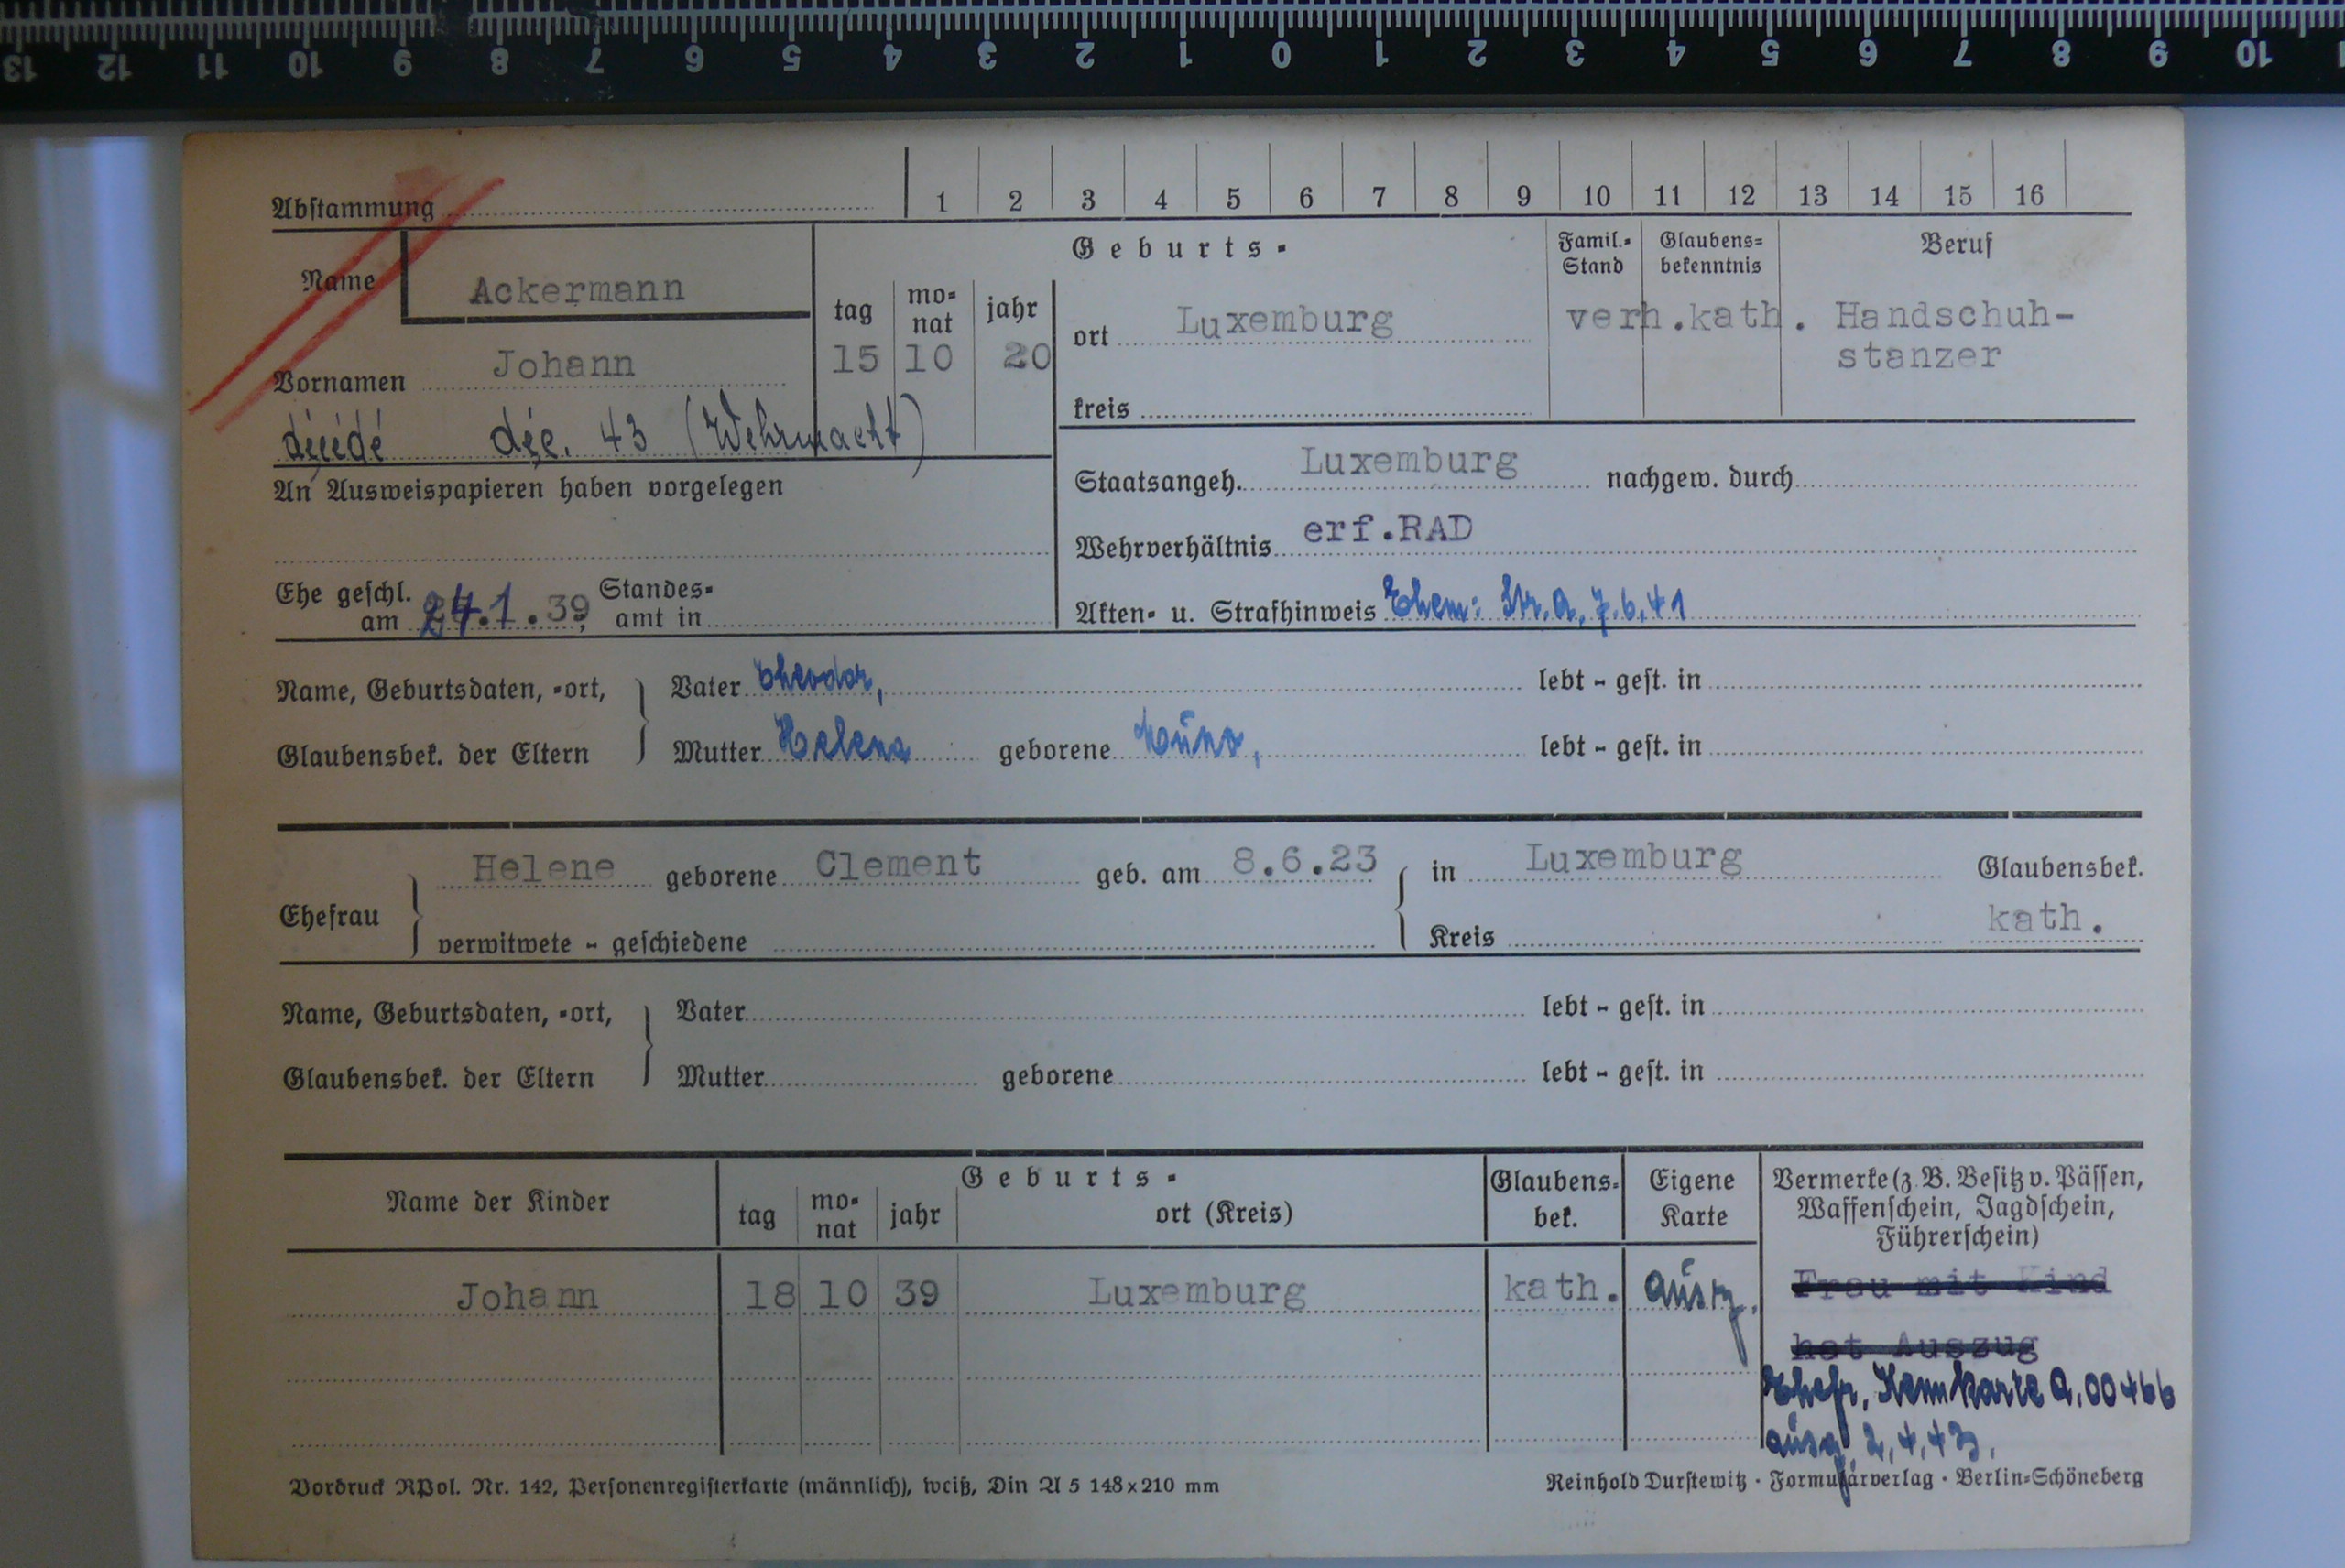 13 12 11 10 9 8 7 6 5 4 3 2 1 0 1 2 3 4 5 6 7 8 9 10
Abstammung 1 2 3 4 5 6 7 8 9 10 11 12 13 14 15 16
Name Ackermann
Vornamen Johann
décédé déc. 43 (Wehrmacht)
Geburts-
tag monat jahr
15 10 20
ort Luxemburg
kreis
Famil.-Stand
verh.
Glaubensbekenntnis
kath.
Beruf
Handschuh-
stanzer
An Ausweispapieren haben vorgelegen
Ehe geschl. am 24.1.39, Standesamt in
Staatsangeh. Luxemburg nachgew. durch
Wehrverhältnis erf.RAD
Akten- u. Strafhinweis Ehem: Str. A. 7.6.41
Name, Geburtsdaten, -ort, Vater Theodor, lebt - gest. in
Glaubensbek. der Eltern Mutter Helena geborene lebt - gest. in
Ehefrau Helene geborene Clement geb. am 8.6.23 in Luxemburg Glaubensbek.
verwitwete - geschiedene Kreis kath.
Name, Geburtsdaten, -ort, Vater lebt - gest. in
Glaubensbek. der Eltern Mutter geborene lebt - gest. in
Name der Kinder
Geburts-
tag monat jahr ort (Kreis)
Glaubensbek.
Eigene Karte
Vermerke (z. B. Besitz v. Pässen,
Waffenschein, Jagdschein,
Führerschein)
Johann 18 10 39 Luxemburg kath. Ausz.
Frau mit Kind
hat Auszug
Ehefr. Kennkarte A.00466
ausg. 2.4.43.
Vordruck RPol. Nr. 142, Personenregisterkarte (männlich), weiß, Din A 5 148 x 210 mm
Reinhold Durstewitz · Formularverlag · Berlin-Schöneberg